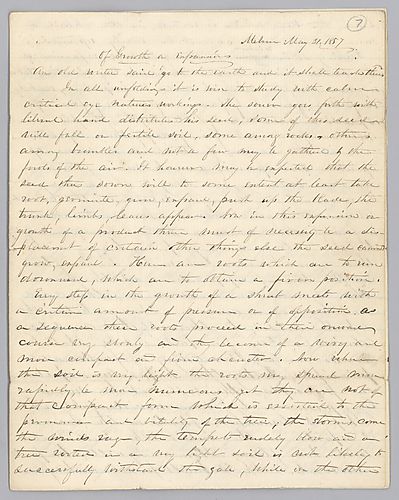 7
May 31, 1857
Of Growth or Expansion
An old writer said go to the earth and it shall teach thee
In all unfoldings it is wise to study with calm
critical eye natures workings. The sower goes forth with
liberal hand distributes his seed, some of this seed
will fall on fertile soil, some among rocks, others
among brambles and not a few may be gathered by the
fowls of the air. It however may be expected that the
seed thus sown will to some extent at least take
root, germinate, grow, expand, push up the blade, the
trunk, limbs, leaves appear. Now in this expansion or
growth of a product there must of necessity be a dis-
placement of certain other things else the seed cannot
grow, expand. Here are roots which are to run
downward, which are to obtain a firm position.
Every step in the growth of a shrub meets with
a certain amount of pressure or of opposition as
a sequence these roots proceed in their onward
course very slowly and they become of a wirey and
more compact or firm character. Now when
the soil is very light the roots may spread more
rapidly, be more numerous yet they are not of
that compact form which is essential to the
permanence and vitality of the tree; the storms come
the winds rage, the tempests rudely blow and a
tree rooted in a very light soil is not likely to
successfully withstand the gale, while on the other